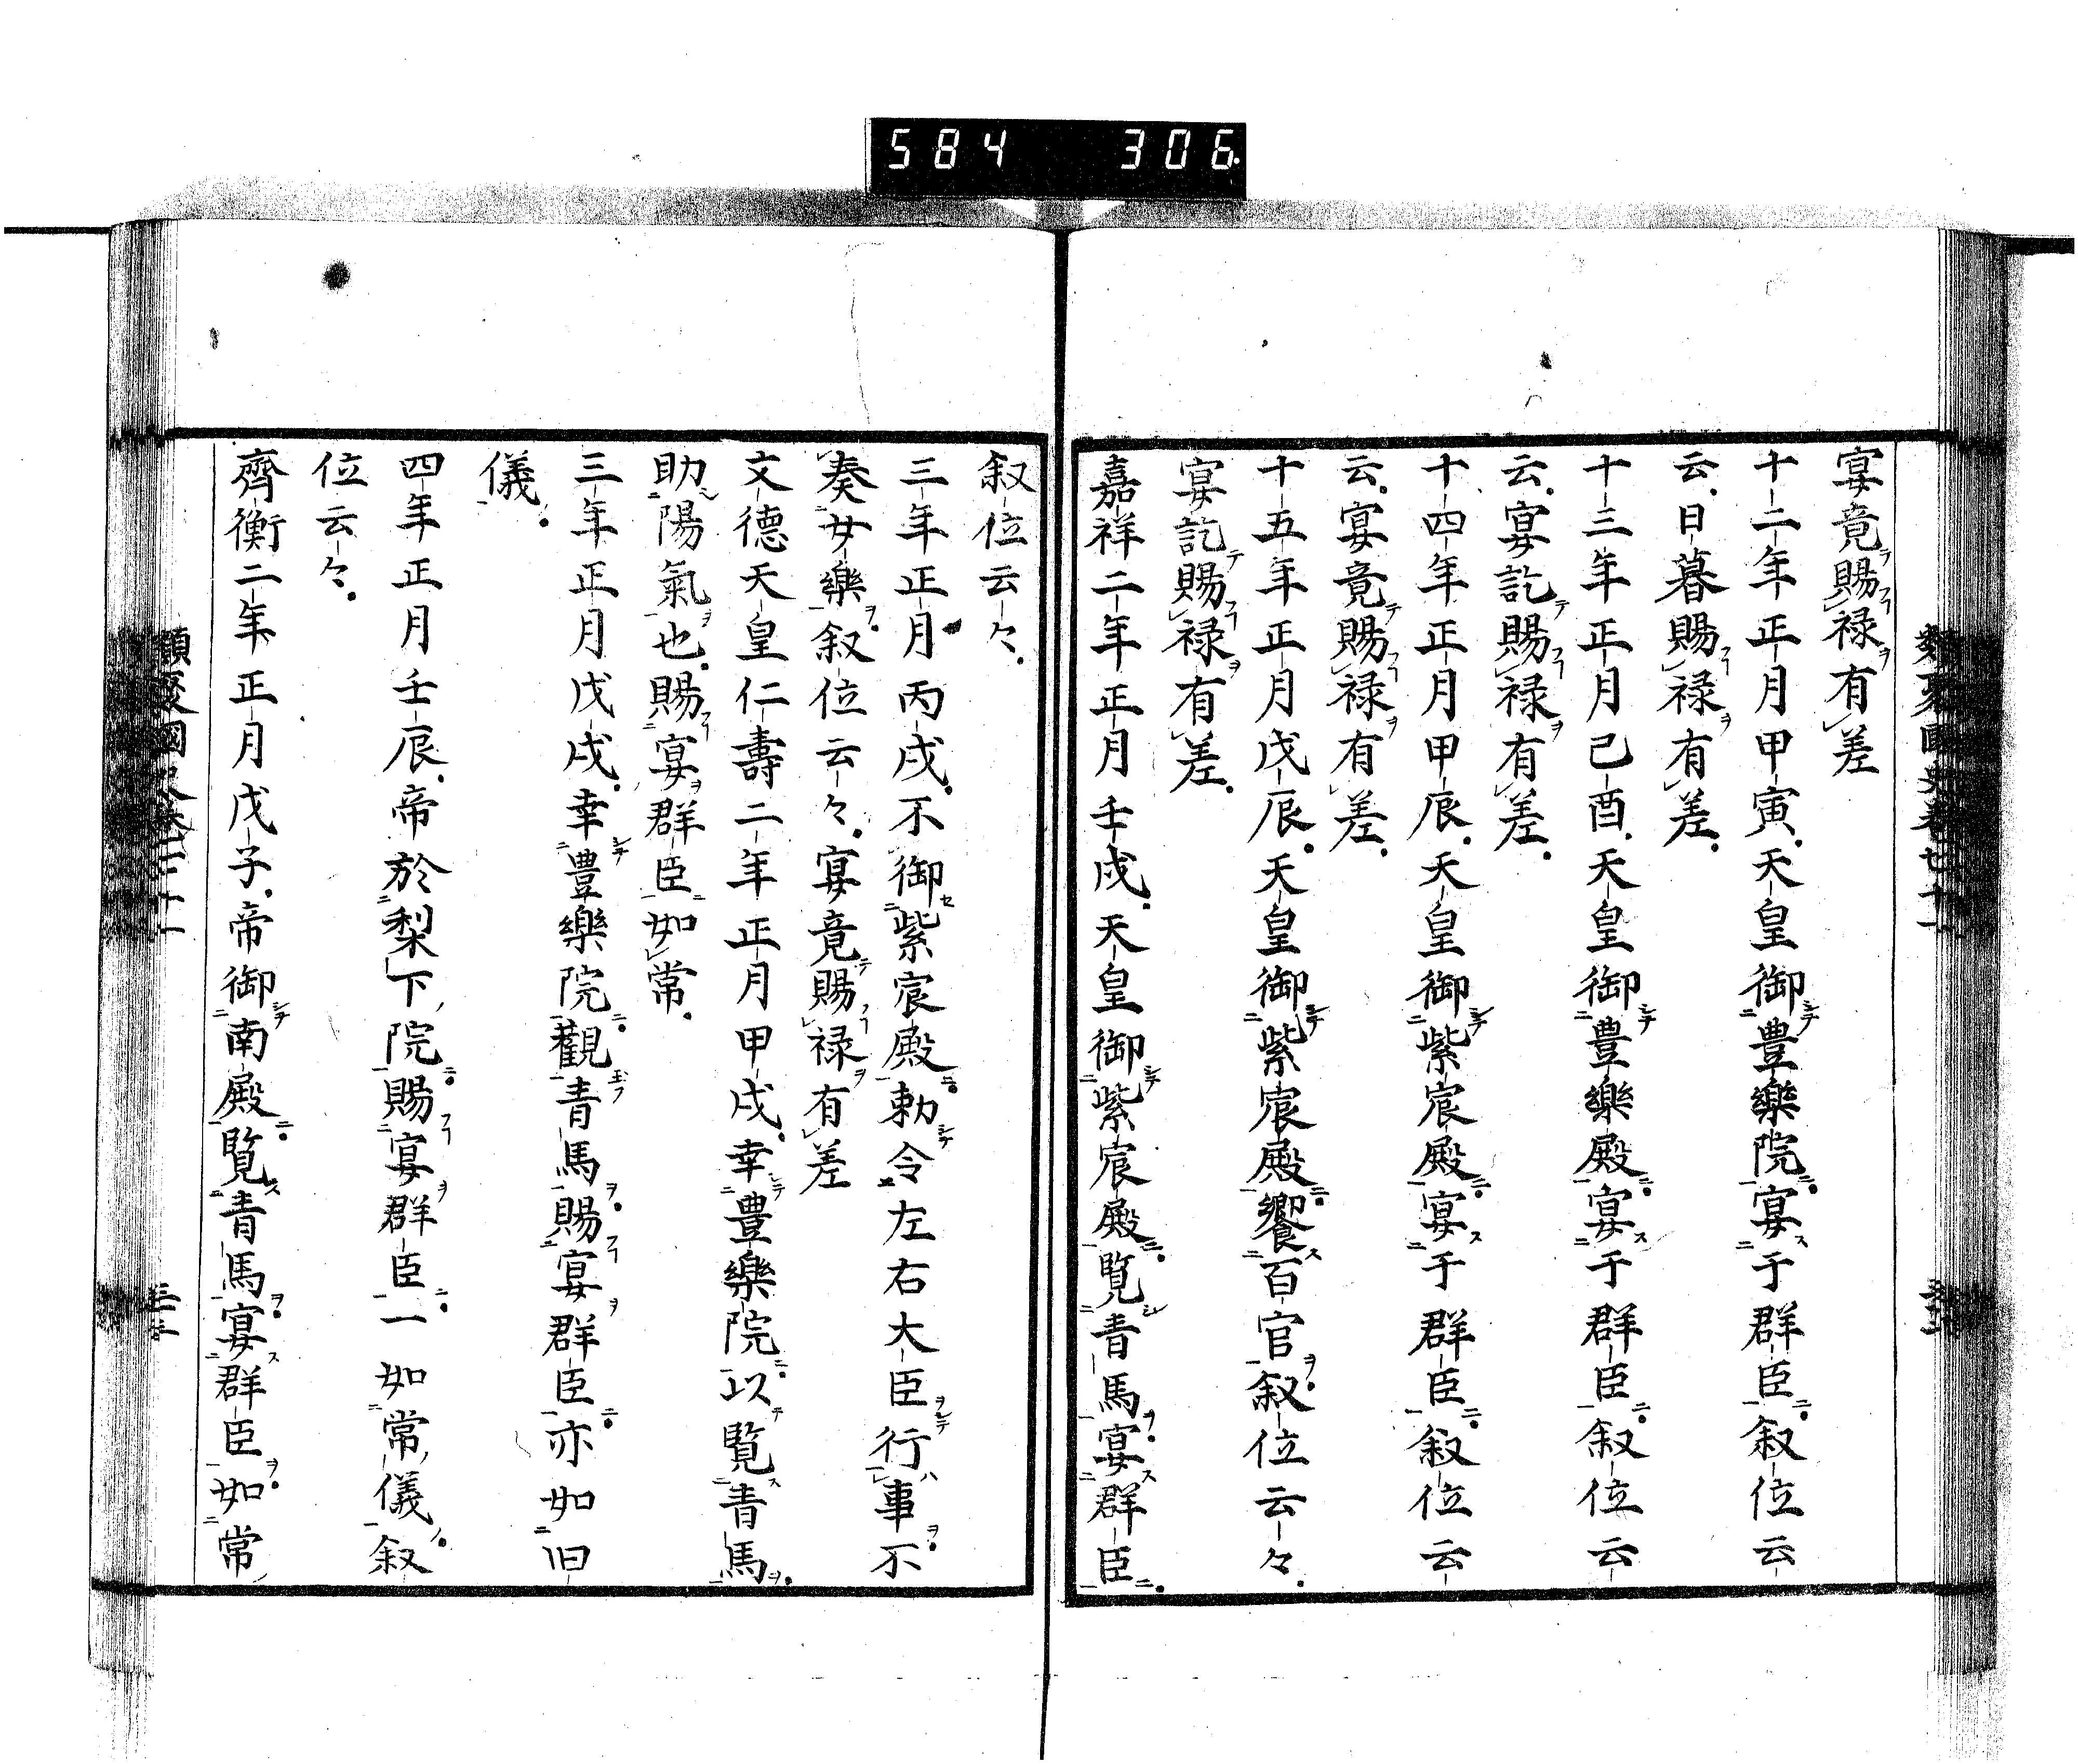 584 306
宴竟賜禄有差
十二年正月甲寅天皇御豊樂院宴于群臣叙位云
云日暮賜禄有差
十三年正月己酉天皇御豊樂殿宴于群臣叙位云
云宴訖賜禄有差
十四年正月甲辰天皇御紫宸殿宴于群臣叙位云
云宴竟賜禄有差
十五年正月戊辰天皇御紫宸殿饗百官叙位云々
宴訖賜禄有差
嘉祥二年正月壬戌天皇御紫宸殿覧青馬宴群臣
叙位云々
三年正月丙戌不御紫宸殿勅令左右大臣行事不
奏女樂叙位云々宴竟賜禄有差
文德天皇仁壽二年正月甲戌幸豊樂院以覧青馬
助陽氣也賜宴群臣如常
三年正月戊戌幸豊樂院觀青馬賜宴群臣亦如旧
儀
四年正月壬辰帝於梨下院賜宴群臣一如常儀叙
位云々
齊衡二年正月戊子帝御南殿覧青馬宴群臣如常